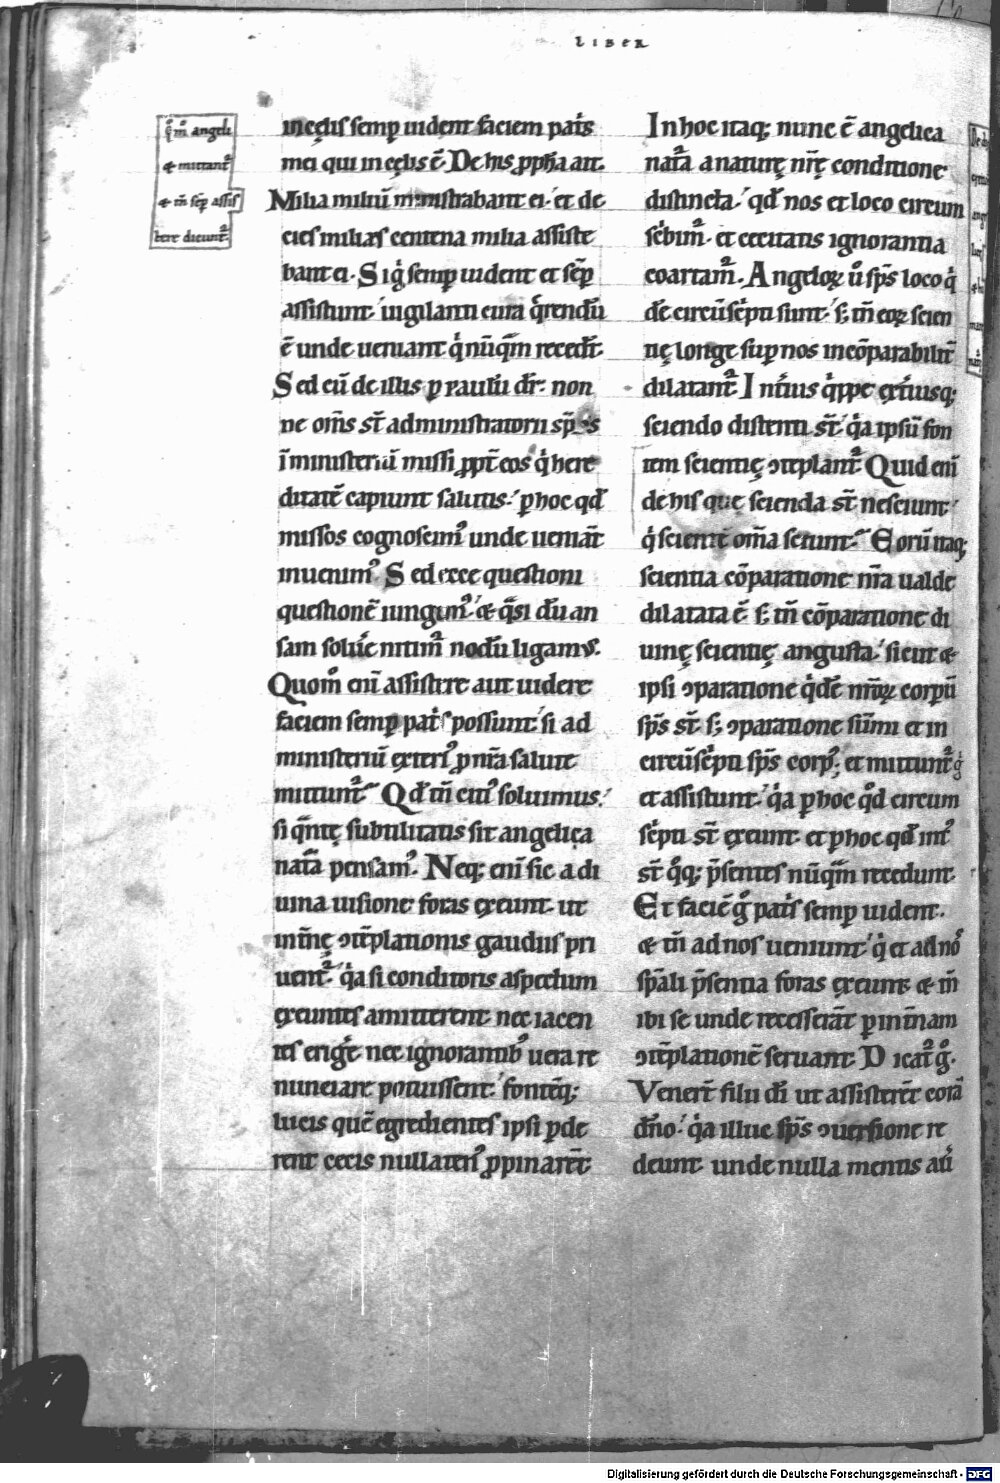 LIBER
q̅m̅ angeli
& mittant᷑
& m̅ sep̅ assis
tere dicunt᷑.
in cęlis semp̲ uident faciem pat͛s
mei qui in cęlis ē. De his p̲ph̅a ait.
Milia miliū ministrabant ei. et de
cies milia͛s centena milia assiste
bant ei. Si g͛ semp̲ uident et sēp̲
assistunt. uigilanti cura q͛rendū
ē unde ueniant q͛ nūq̅m recedt̅.
Sed cū de illis p̲ paulū dr̅. non
ne om̅s st̅ administratorii sp̅s
ī ministeriū missi p̲pt̅ eos q͛ here
ditatē capiunt salutis. p̲ hoc qd̅
missos cognoscim᷒ unde ueniāt
inuenim᷒. Sed ecce questioni
questionē iungim᷒. & q̅si dū an
sam soluere nitim᷑ nodū ligam᷒.
Quom̊ eni̅ assistere aut uidere
faciem semp̲ pat͛s possunt. si ad
ministeriū exteri᷒ p̲ nr̅a salute
mittunt᷑. Qd̅ tn̅ citi᷒ soluimus.
si q̅ntę subtilitatis sit angelica
nat᷑a pensam᷒. Neq; eni̅ sic a di
uina uisione foras exeunt. ut
int̅nę ɔte̅plationis gaudiis pri
uent᷑. q͛a si conditoris aspectum
exeuntes amitterent. nec iacen
tes erig͛e nec ignorantib᷒ uera re
nunciare potuissent. fontēq;
lucis quē egredientes ipsi p̲de
rent cecis nullaten᷒ p̲pinarent.
In hoc itaq; nunc ē angelica
nat᷑a a naturę nr̅ę conditione
distincta. qd̅ nos et loco circum
sc͛bim᷑. et cecitatis ignorantia
coartam᷑. Angeloꝝ ů sp̅s loco q͛
dē circūsc͛pti sunt. s; tn̅ eoꝝ scien
tię longe sup̲ nos incōparabilit̅
dilatant᷑. Int͛ius q͛ppe ext͛iusq;
sciendo distenti st̅. q͛a ipsū fon
tem scientię ɔte̅plant᷑. Quid eni̅
de his quę scienda st̅ nesciunt.
q͛ scientē om̅a sciunt. Eorū itaq;
scientia cōparatione nr̅a ualde
dilatata ē. s; tn̅ cōparatione di
uinę scientię angusta. sicut &
ipsi ɔparatione q͛dē nr̅oꝝ corpū
sp̅s st̅. s; ɔparatione sūmi et in
circūsc͛pti sp̅s corp᷒. et mittunt᷑ g͛
et assistunt. q͛a p̲ hoc qd̊ circum
sc͛pti st̅ exeunt. et p̲ hoc qd̅ int᷒
st̅ q̊q; p̅sentes nūq̅m recedunt.
Et faciē g̊ pat͛s semp̲ uident.
& tn̅ ad nos ueniunt. q͛ et ad nos
sp̅ali p̅sentia foras exeunt & tn̅
ibi se unde recesserāt p̲ int̅nam
ɔte̅plationē seruant. Dicat᷑ g̊.
Venert̅ filii di̅ ut assisterēt corā
dn̅o. q͛a illuc sp̅s ɔuersione re
deunt unde nulla mentis au͛
Digitalisierung gefördert durch die Deutsche Forschungsgemeinschaft - DFG